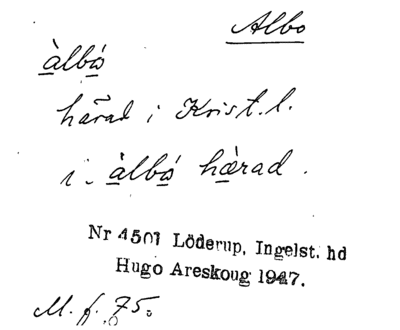 Albo
àlbó
härad i Krist. l.
i. àlbó hèrad.
Nr 4501 Löderup, Ingelst. hd
Hugo Areskoug 1947.
M. f. 75.